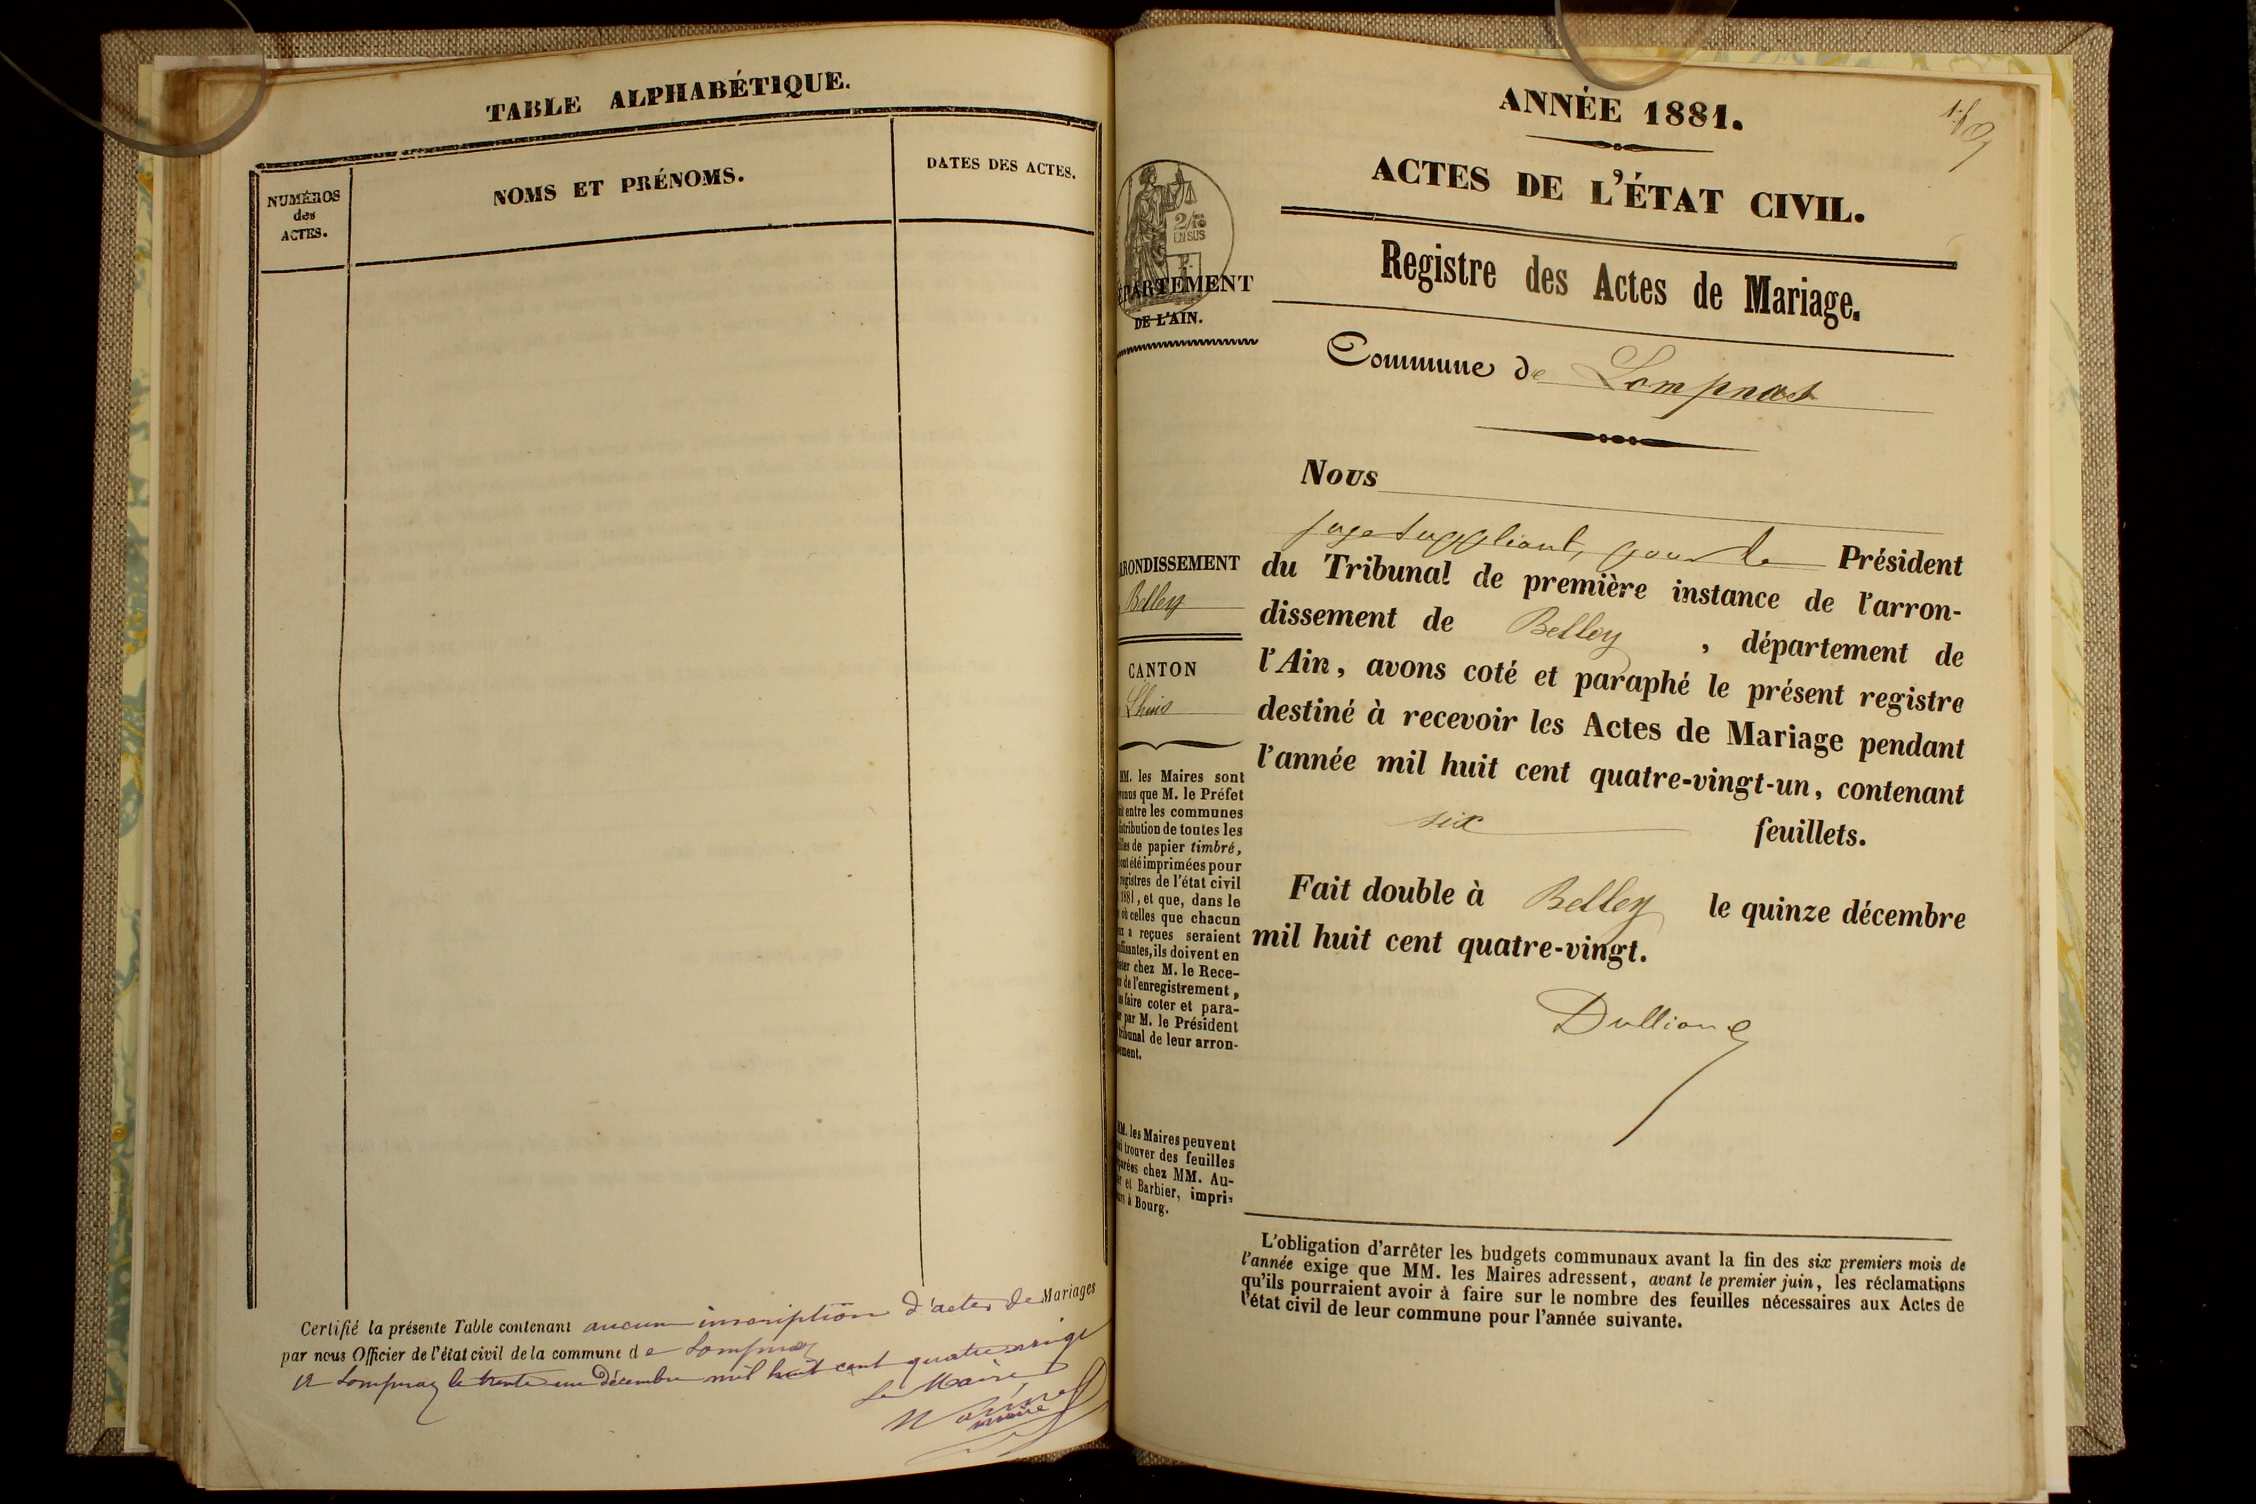 TABLE ALPHABÉTIQUE.
NUMÉROS
des
ACTES.
NOMS ET PRÉNOMS.
DATES DES ACTES.
Certifié la présente Table contenant aucune inscription d'actes de Mariages
par nous Officier de l'état civil de la commune de Lompnaz
A Lompnaz le trente un Décembre mil huit cent quatre vingt
Le Maire
maire
ANNÉE 1881.
ACTES DE L'ÉTAT CIVIL.
2/10
EN SUS
DÉPARTEMENT
DE L'AIN.
Registre des Actes de Mariage.
Commune de Lompnas
Nous
juge suppléant, pour le Président
du Tribunal de première instance de l'arron-
dissement de Belley, département de
l'Ain, avons coté et paraphé le présent registre
destiné à recevoir les Actes de Mariage pendant
l'année mil huit cent quatre-vingt-un, contenant
six feuillets.
Fait double à Belley le quinze décembre
mil huit cent quatre-vingt.
RONDISSEMENT
Belley
CANTON
Lhuis
MM. les Maires sont
que M. le Préfet
entre les communes
tribution de toutes les
de papier timbré,
ont été imprimées pour
registres de l'état civil
1881, et que, dans le
où celles que chacun
a reçues seraient
ils doivent en
chez M. le Rece-
de l'enregistrement,
faire coter et para-
par M. le Président
tribunal de leur arron-
ement.
MM. les Maires peuvent
trouver des feuilles
chez MM. Au-
et Barbier, impri-
à Bourg.
L'obligation d'arrêter les budgets communaux avant la fin des six premiers mois de
l'année exige que MM. les Maires adressent, avant le premier juin, les réclamations
qu'ils pourraient avoir à faire sur le nombre des feuilles nécessaires aux Actes de
l'état civil de leur commune pour l'année suivante.